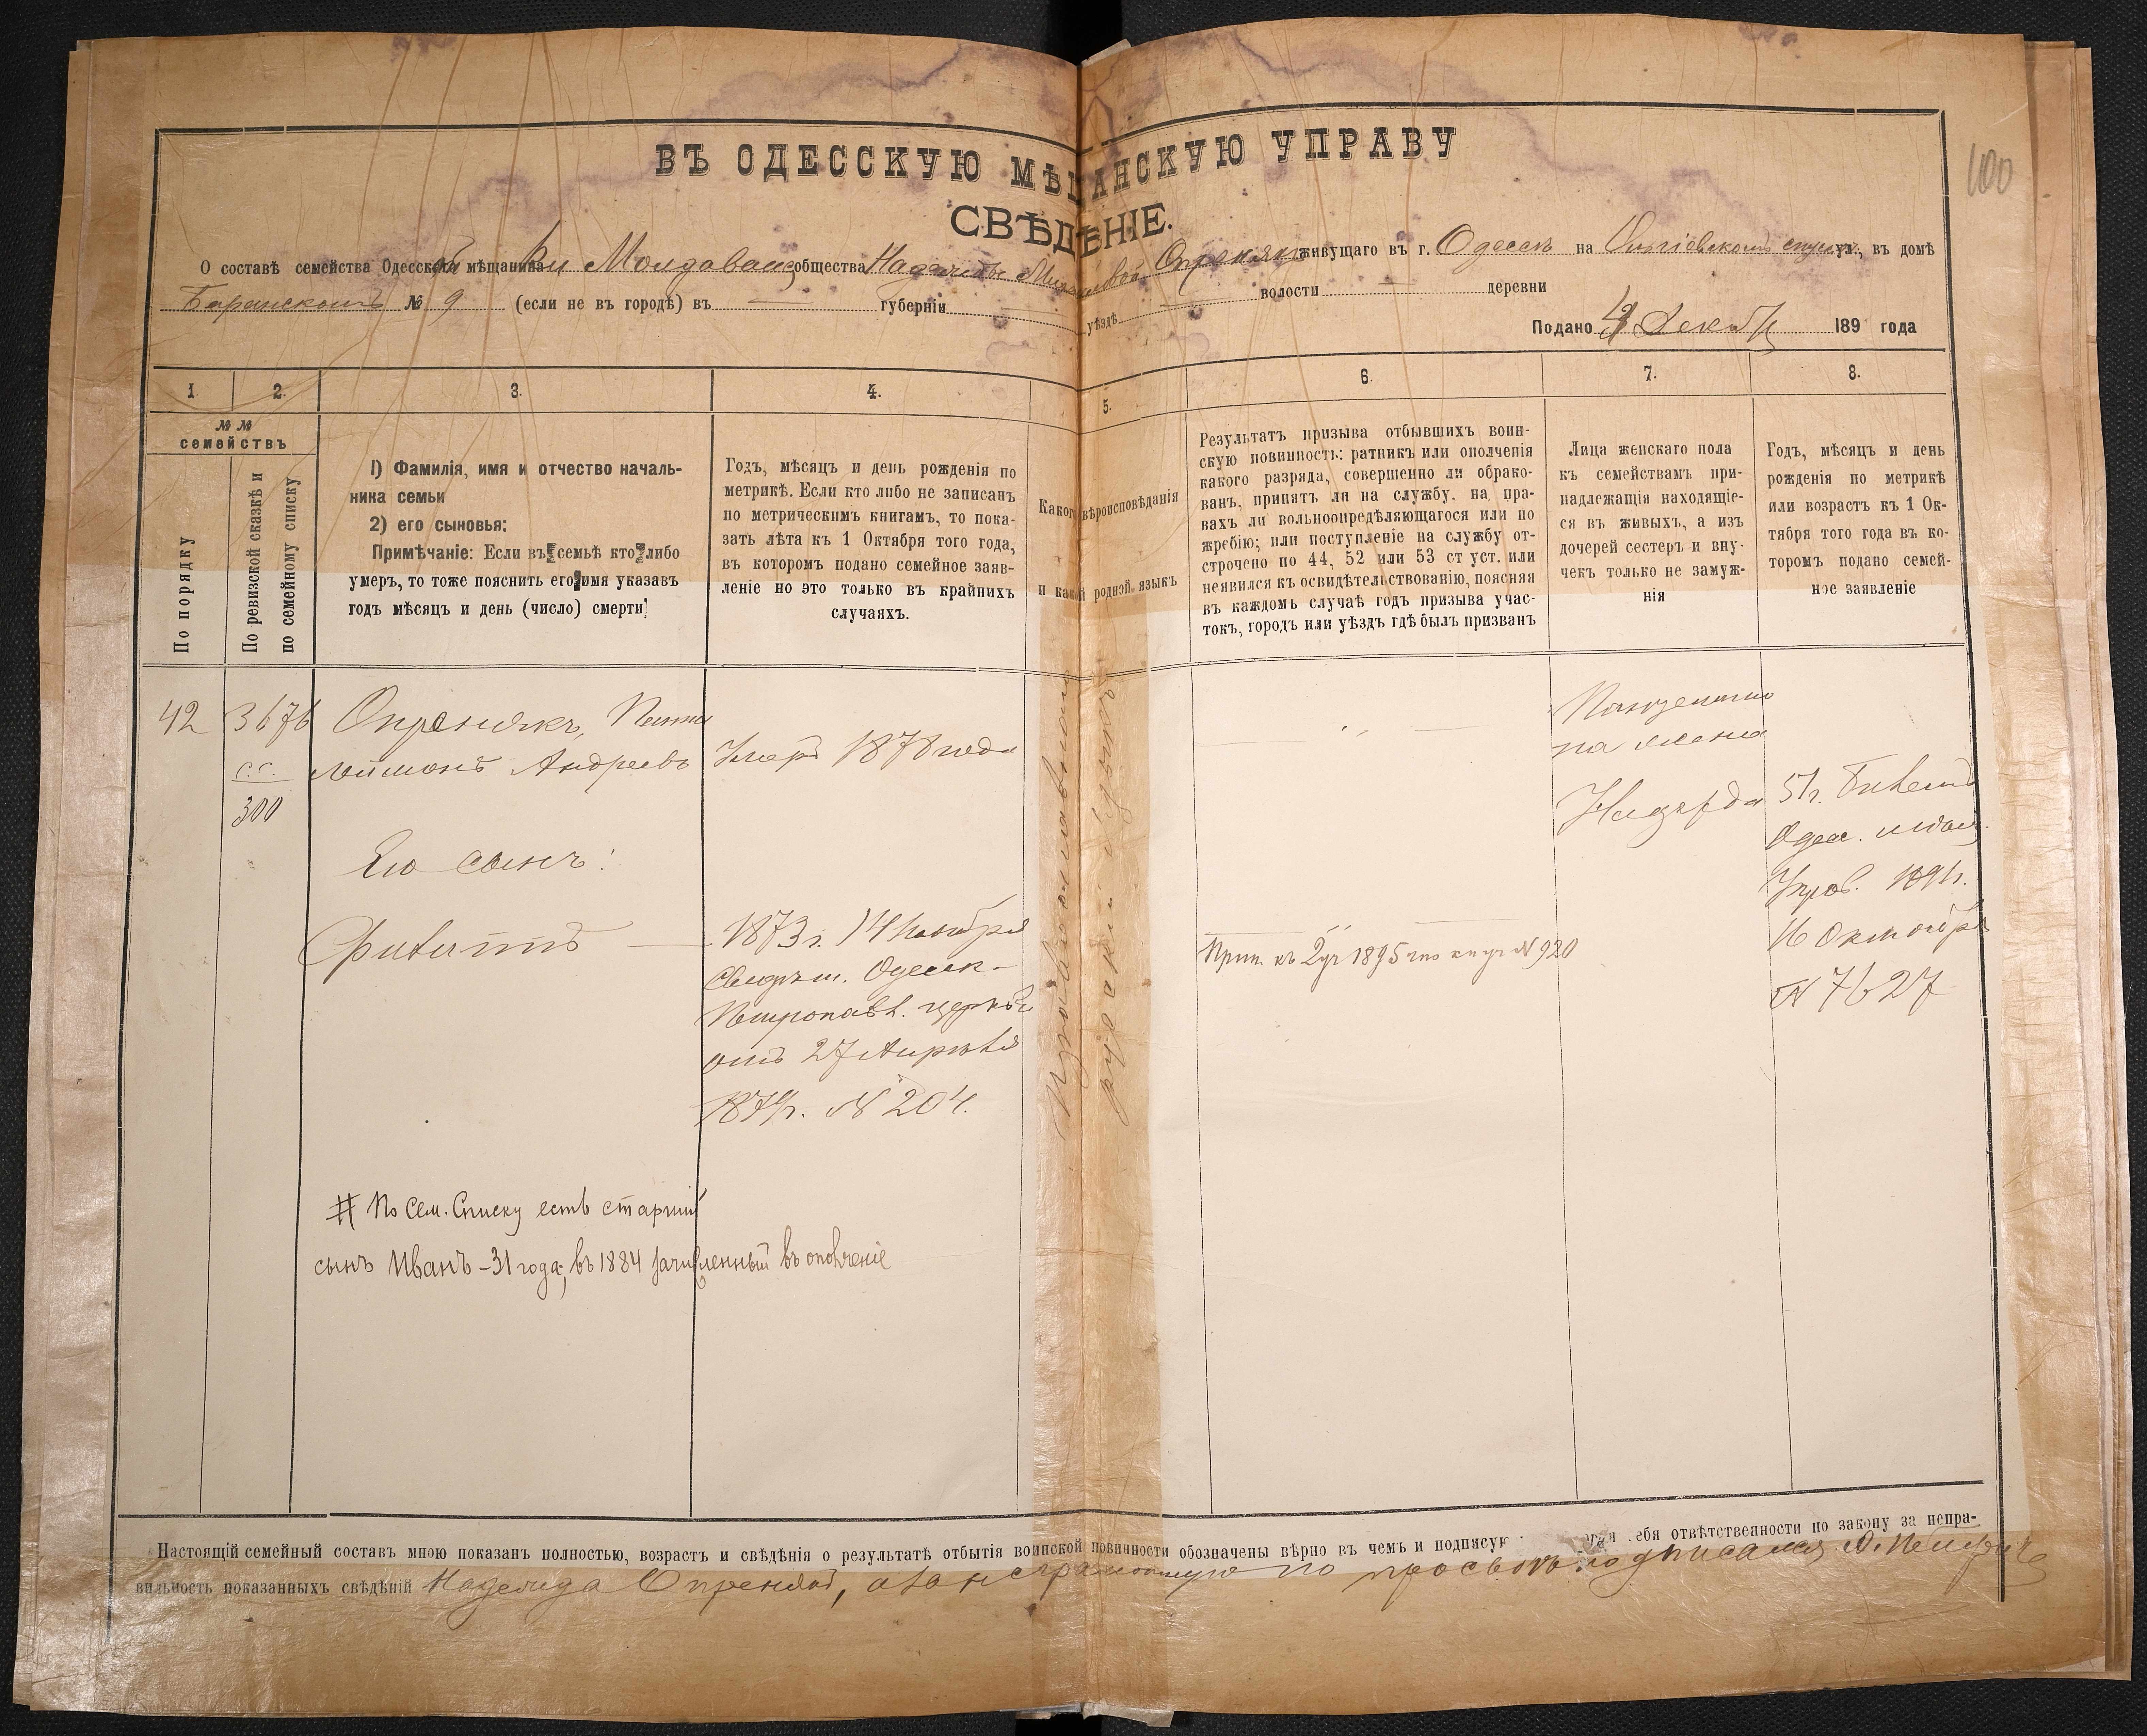 100
ВЪ ОДЕССКУЮ МѢЩАНСКУЮ УПРАВУ
СВѢДѢНІЕ.
О составѣ семейства Одесской мѣщанки Молдаванс. общества Надежды Опренякъ живущаго въ г. Одессѣ на ул., въ домѣ
Баранскомъ № 9 (если не въ городѣ) въ — губерніи — уѣздѣ — волости — деревни
Подано Декаб. 189 года
1. 2. 3. 4. 5. 6. 7. 8.
№№ семействъ
По порядку
По ревизской сказкѣ и
по семейному списку
1) Фамилія, имя и отчество началь-
ника семьи
2) его сыновья:
Примѣчаніе: Если въ семьѣ кто либо
умеръ, то тоже пояснить его имя указавъ
годъ мѣсяцъ и день (число) смерти
Годъ, мѣсяцъ и день рожденія по
метрикѣ. Если кто либо не записанъ
по метрическимъ книгамъ, то пока-
зать лѣта къ 1 Октября того года,
въ которомъ подано семейное заяв-
леніе но это только въ крайнихъ
случаяхъ.
Какого вѣроисповѣданія
и какой родной языкъ
Результатъ призыва отбывшихъ воин-
скую повинность: ратникъ или ополченія
какого разряда, совершенно ли обрако-
ванъ, принятъ ли на службу, на пра-
вахъ ли вольноопредѣляющагося или по
жребію; или поступленіе на службу от-
строчено по 44, 52 или 53 ст уст. или
неявился къ освидѣтельствованію, поясняя
въ каждомъ случаѣ годъ призыва учас-
токъ, городъ или уѣздъ гдѣ былъ призванъ
Лица женскаго пола
къ семействамъ при-
надлежащія находящіе-
ся въ живыхъ, а изъ
дочерей сестеръ и вну-
чекъ только не замуж-
нія
Годъ, мѣсяцъ и день
рожденія по метрикѣ
или возрастъ къ 1 Ок-
тября того года въ ко-
торомъ подано семей-
ное заявленіе
42
3676
с.с.
300
Опренякъ, Панте
леймонъ Андреевъ
Умеръ 1878 года
Его сынъ:
Филиппъ —
1873 г. 14 Ноября
Свидѣт. Одесск-
Петропавл. церкви
отъ 27 Апрѣля
1879г. № 204.
Православнаго
русскій языкъ
Прин. къ 2 уч 1895 по № 920
жена
Надежда
51 г. Билетъ
Одес. мѣщ.
Управ. 1891г.
16 Октября
№ 7627
# По Сем. Списку есть старшій
сынъ Иванъ – 31 года; въ 1884 зачисленный въ ополченіе
Настоящій семейный составъ мною показанъ полностью, возрастъ и свѣдѣнія о результатѣ отбытія воинской повинности обозначены вѣрно въ чемъ и подписую себя отвѣтственности по закону за непра-
вильность показанныхъ свѣдѣній Надежда Опренякъ, а за неграмотную по просьбѣ подписался